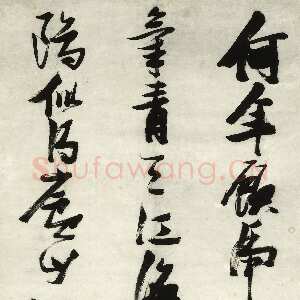 何年顧虎
氣青天江海
似得廬山
Shufawang.cn